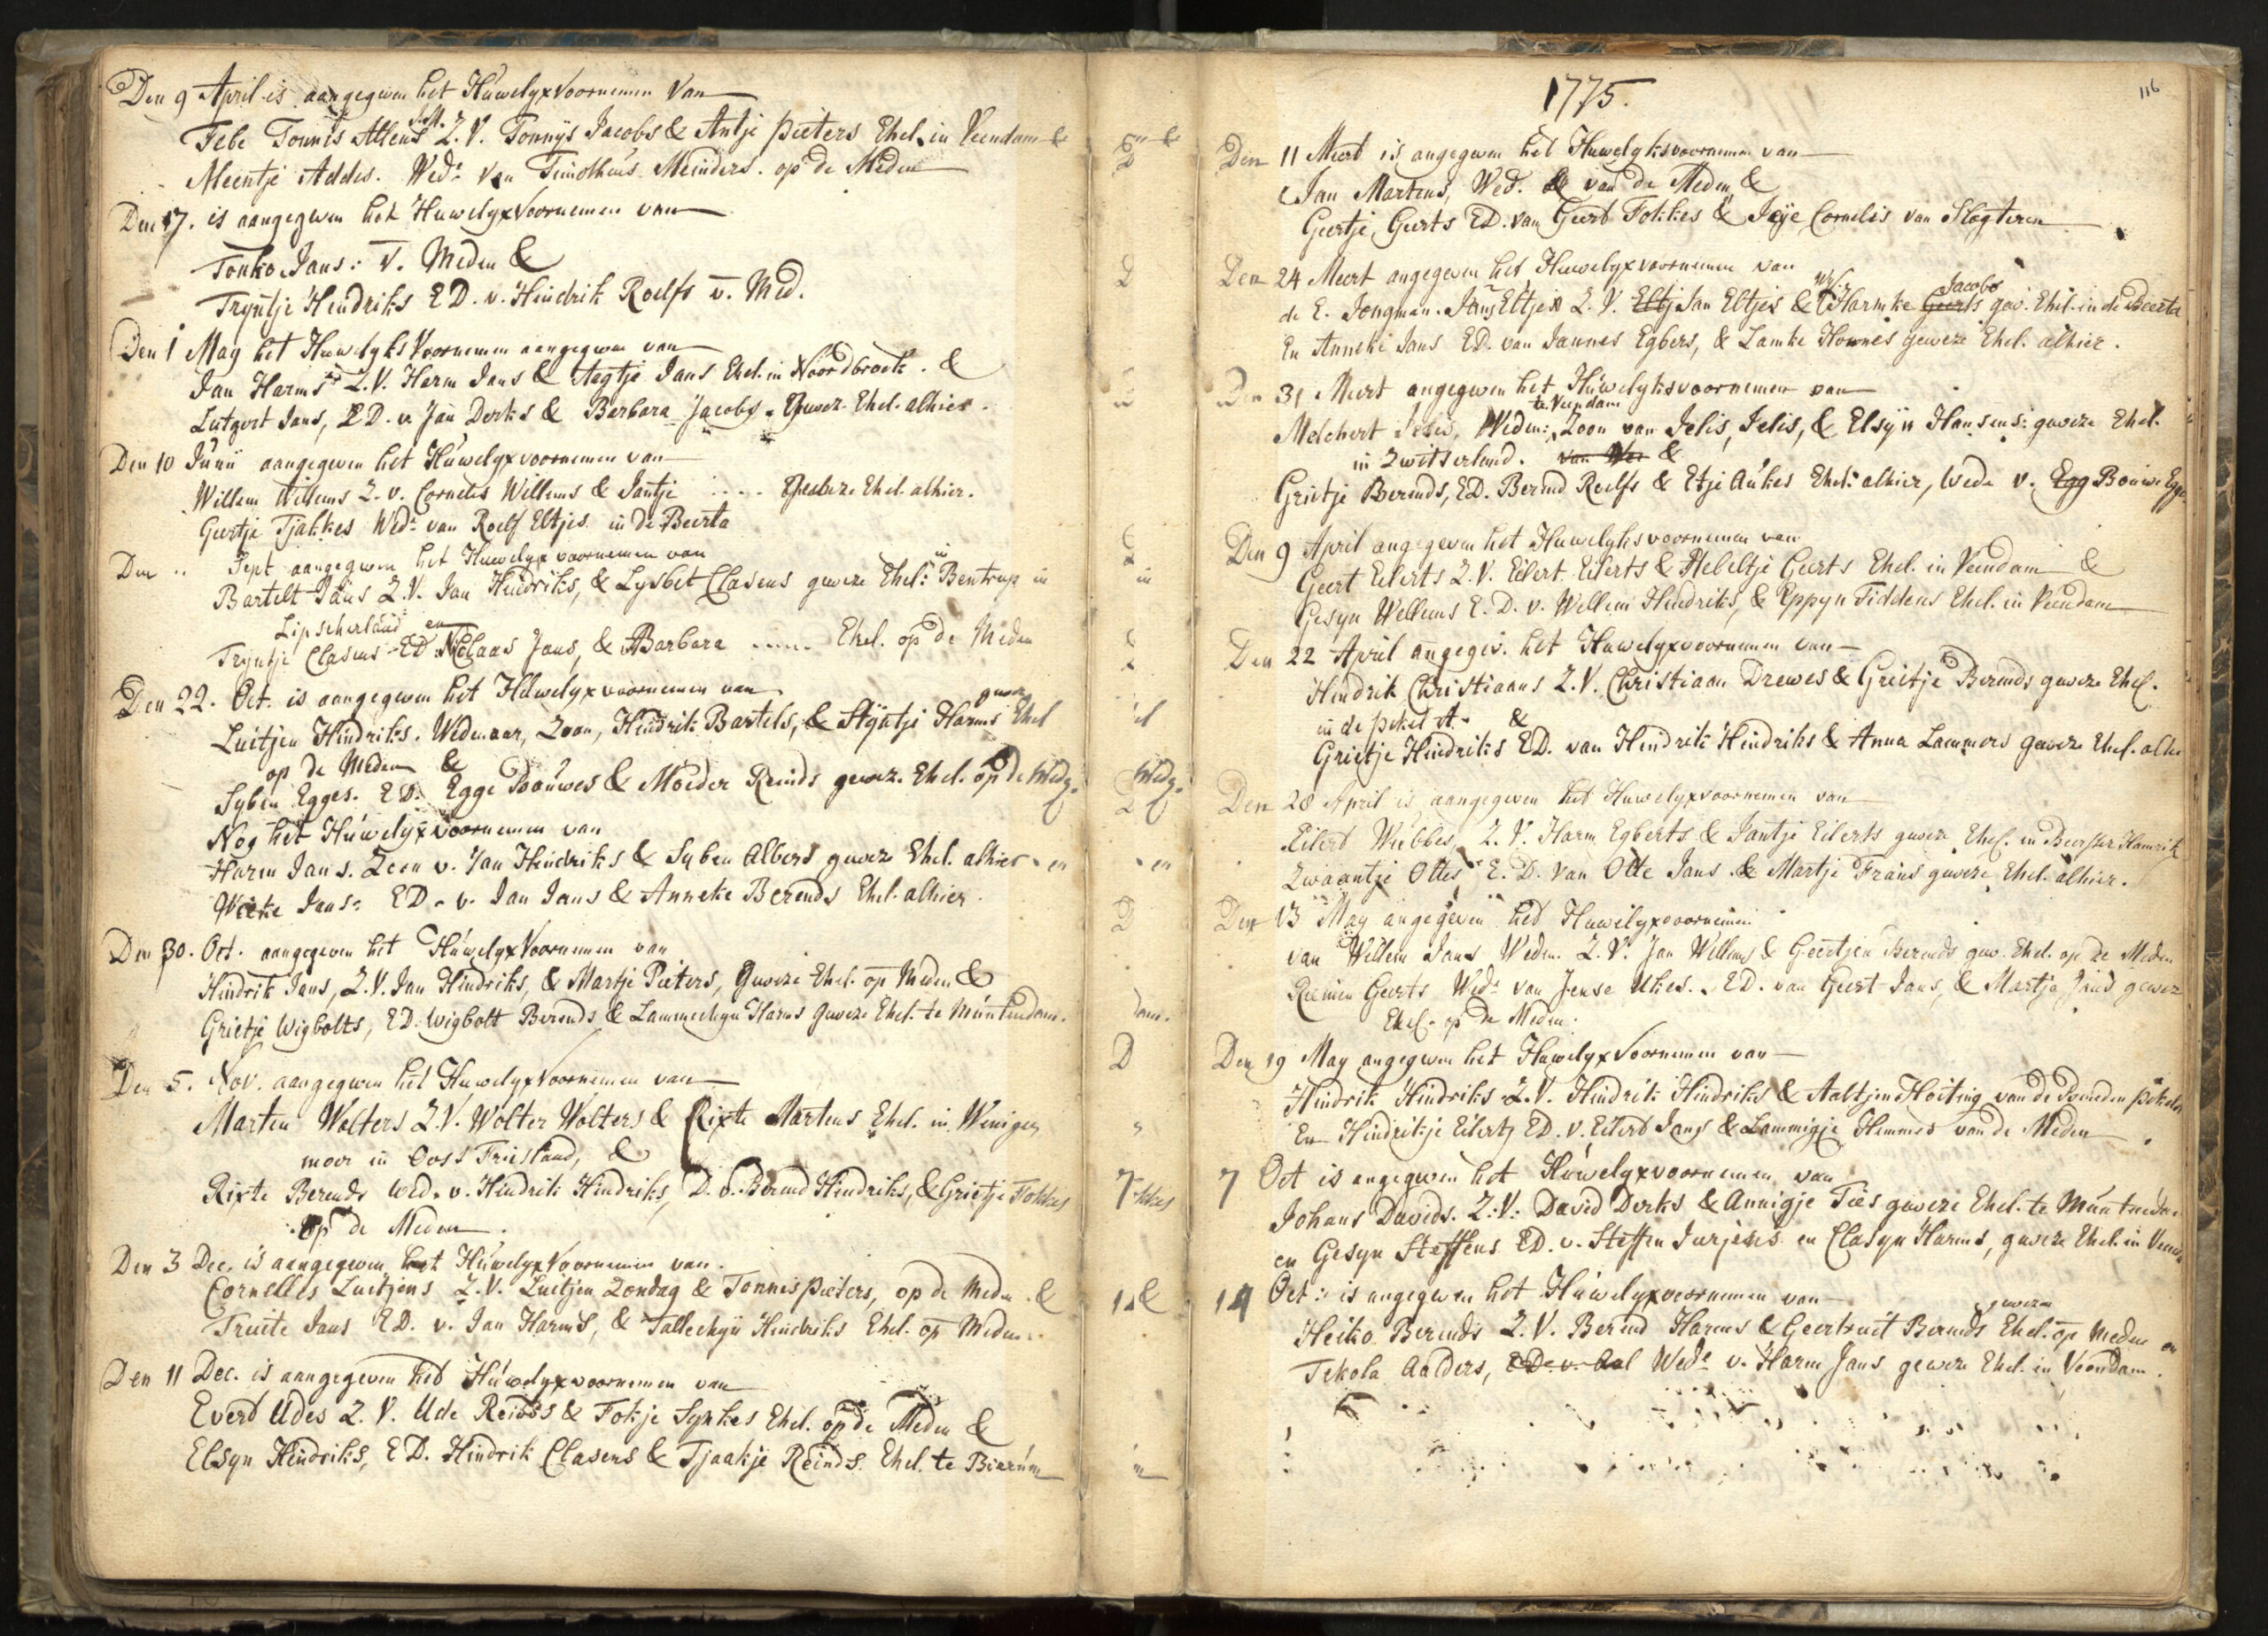 Den 9 April is aangegeven het Huwelyx Voornemen Van
Febe Tonnis Attens Z.V. Tonnijs Jacobs & Antje pieters Ehel. in Veendam &
Meentje Addes. Wed: van Timotheus Meinders. op de Meden
Den 17. is aangegeven het Huwelyx Voornemen van
Tonko Jans: v. Meden &
Tryntje Hendriks E D. v. Hindrik Roelfs v. Med.
Den 1 May het Huwelyks Voornemen aangegeven van
Jan Harms Z.V. Harm Jans & Aegtje Jans Ehel. in Noordbroek. &
Lutgert Jans, E D. v. Jan Derks & Barbara Jacobs. Gewez. Ehel. alhier.
Den 10 Junii aangegeven het Huwelyx voornemen van
Willem Willems Z. v. Cornelis Willems & Jantje .... Geweze Ehel. alhier.
Geertje Tjakkes Wed: van Roelf Eltjes in de Beerta
Den .. Sept aangegeven het Huwelyx voornemen van
Bartelt Jans Z.V. Jan Hendriks, & Lysbet Clasens geweze Ehel: in Bentrup in
Lipscherland en
Tryntje Clasens ED. v. Claas Jans, & Barbara ..... Ehel. op de Meden
Den 22. Oct. is aangegeven het Huwelyx voornemen van
Luitjen Hindriks. Wedenaar, Zoon, Hindrik Bartels, & Styntje Harms gewez Ehel
op de Meden &
Syben Egges. E D. Egge Bouwes & Moeder Reinds geweze Ehel. op de Medg.
Nog het Huwelyx Voornemen van
Harm Jans. Zoon v. Jan Hindriks & Syben Albers geweze Ehel. alhier en
Wieke Jans: ED. v. Jan Jans & Anneke Berends Ehel. alhier.
Den 30. Oct. aangegeven het Huwelyx Voornemen van
Hindrik Jans, Z.V. Jan Hindriks, & Martje Pieters, Geweze Ehel. op Meden &
Grietje Wigbolts, ED. Wigbolt Berends & Lammechyn Harms Geweze Ehel. te Muntendam.
Den 5. Nov. aangegeven het Huwelyx Voornemen van
Marten Wolters Z.V. Wolter Wolters & Rixte Martens Ehel. in Weniger
moor in Oost Friesland, &
Rixte Berends Wed. v. Hindrik Hindriks, D. v. Berend Hindriks, & Grietje Fokkes
op de Meden
Den 3 Dec. is aangegeven het Huwelyx Voornemen van.
Cornelles Luitjens Z.V. Luitjen Zondag & Tonnis pieters, op de Meden. &
Truite Jans E D. v. Jan Harms, & Tallechyn Hindriks Ehel. op Meden.
Den 11 Dec. is aangegeven het Huwelyx voornemen van
Evert Udes Z.V. Ude Reinds & Fokje Synkes Ehel. op de Meden &
Elsyn Hindriks, E D. Hindrik Clasens & Tjaakje Reinds. Ehel. te Bierum
116
1775.
Den 11 Meert is angegeven het Huwelyksvoornemen van
Jan Martens, Wed. & van de Meden &
Geertje Geerts ED. van Geert Fokkes & Jeye Cornelis van Slogteren
Den 24 Meert angegeven het Huwelyxvoornemen van
de E. Jongman. Jans Eltjes Z.V. Eltj Jan Eltjes & Harmke Geerts Jacobs gew. Ehel. in de Beerta
En Anneke Jans ED. van Jannes Egbers, & Lamke Hownes geweze Ehel. alhier.
Den 31 Meert angegeven het Huwelyksvoornemen van
Melchert Jelis, Weden: te Veendam Zoon van Jelis Jelis, & Elsyn Hansens: geweze Ehel.
in Zwitserland. van Wee &
Grietje Berends, ED. Berend Roelfs & Etje Aukes Ehel: alhier, Wede v. Egg Bouwe Egge
Den 9 April angegeven het Huwelyksvoornemen van
Geert Eilerts Z.V. Eilert Eilerts & Hebeltje Geerts Ehel. in Veendam &
Gesyn Wellems E. D. v. Wellem Hindriks, & Eppyn Tiddens Ehel. in Veendam
Den 22 April angegev. het Huwelyxvoornemen van
Hindrik Christiaans Z.V. Christiaan Drewes & Grietje Berends geweze Ehel.
in de pekel A. &
Grietje Hindriks ED. van Hindrik Hindriks & Anna Lammers geweze Ehel. alhier
Den 28 April is aangegeven het Huwelyxvoornemen van
Eilert Wubbes, Z.V. Harm Egberts & Jantje Eilerts geweze Ehel. in Beerster Hamrik
Zwaantje Ottes E. D. van Otte Jans & Martje Frans geweze Ehel. alhier.
Den 13 May angegeven het Huwelyxvoornemen
van Willem Jans Weden. Z.V. Jan Willems & Geertjen Berends gew. Ehel. op de Meden
Reemen Geerts Wed: van Jense Ukes.. ED. van Geert Jans, & Martje Jans gewez
Ehel. op de Meden.
Den 19 May angegeven het Huwelyx Voornemen van
Hindrik Hindriks Z.V. Hindrik Hindriks & Aaltjen Hoiting van de Boveden pekela
En Hindrikje Eilerts ED. v. Eilert Jans & Lammigje Hemmes van de Meden
7 Oct is angegeven het Huwelyxvoornemen van
Johans Davids. Z:V: David Derks & Annigje Ties geweze Ehel. te Muntendam
en Gesyn Steffens ED. v. Steffen Jurjens en Clasyn Harms, geweze Ehel. in Veend
14 Oct: is angegeven het Huwelyxvoornemen van
Heiko Berends Z.V. Berend Harms & Geertruit Berends gewezen Ehel. op Meden en
Tekola Aalders, ED. v. Aal Wed: v. Harm Jans geweze Ehel. in Veendam.